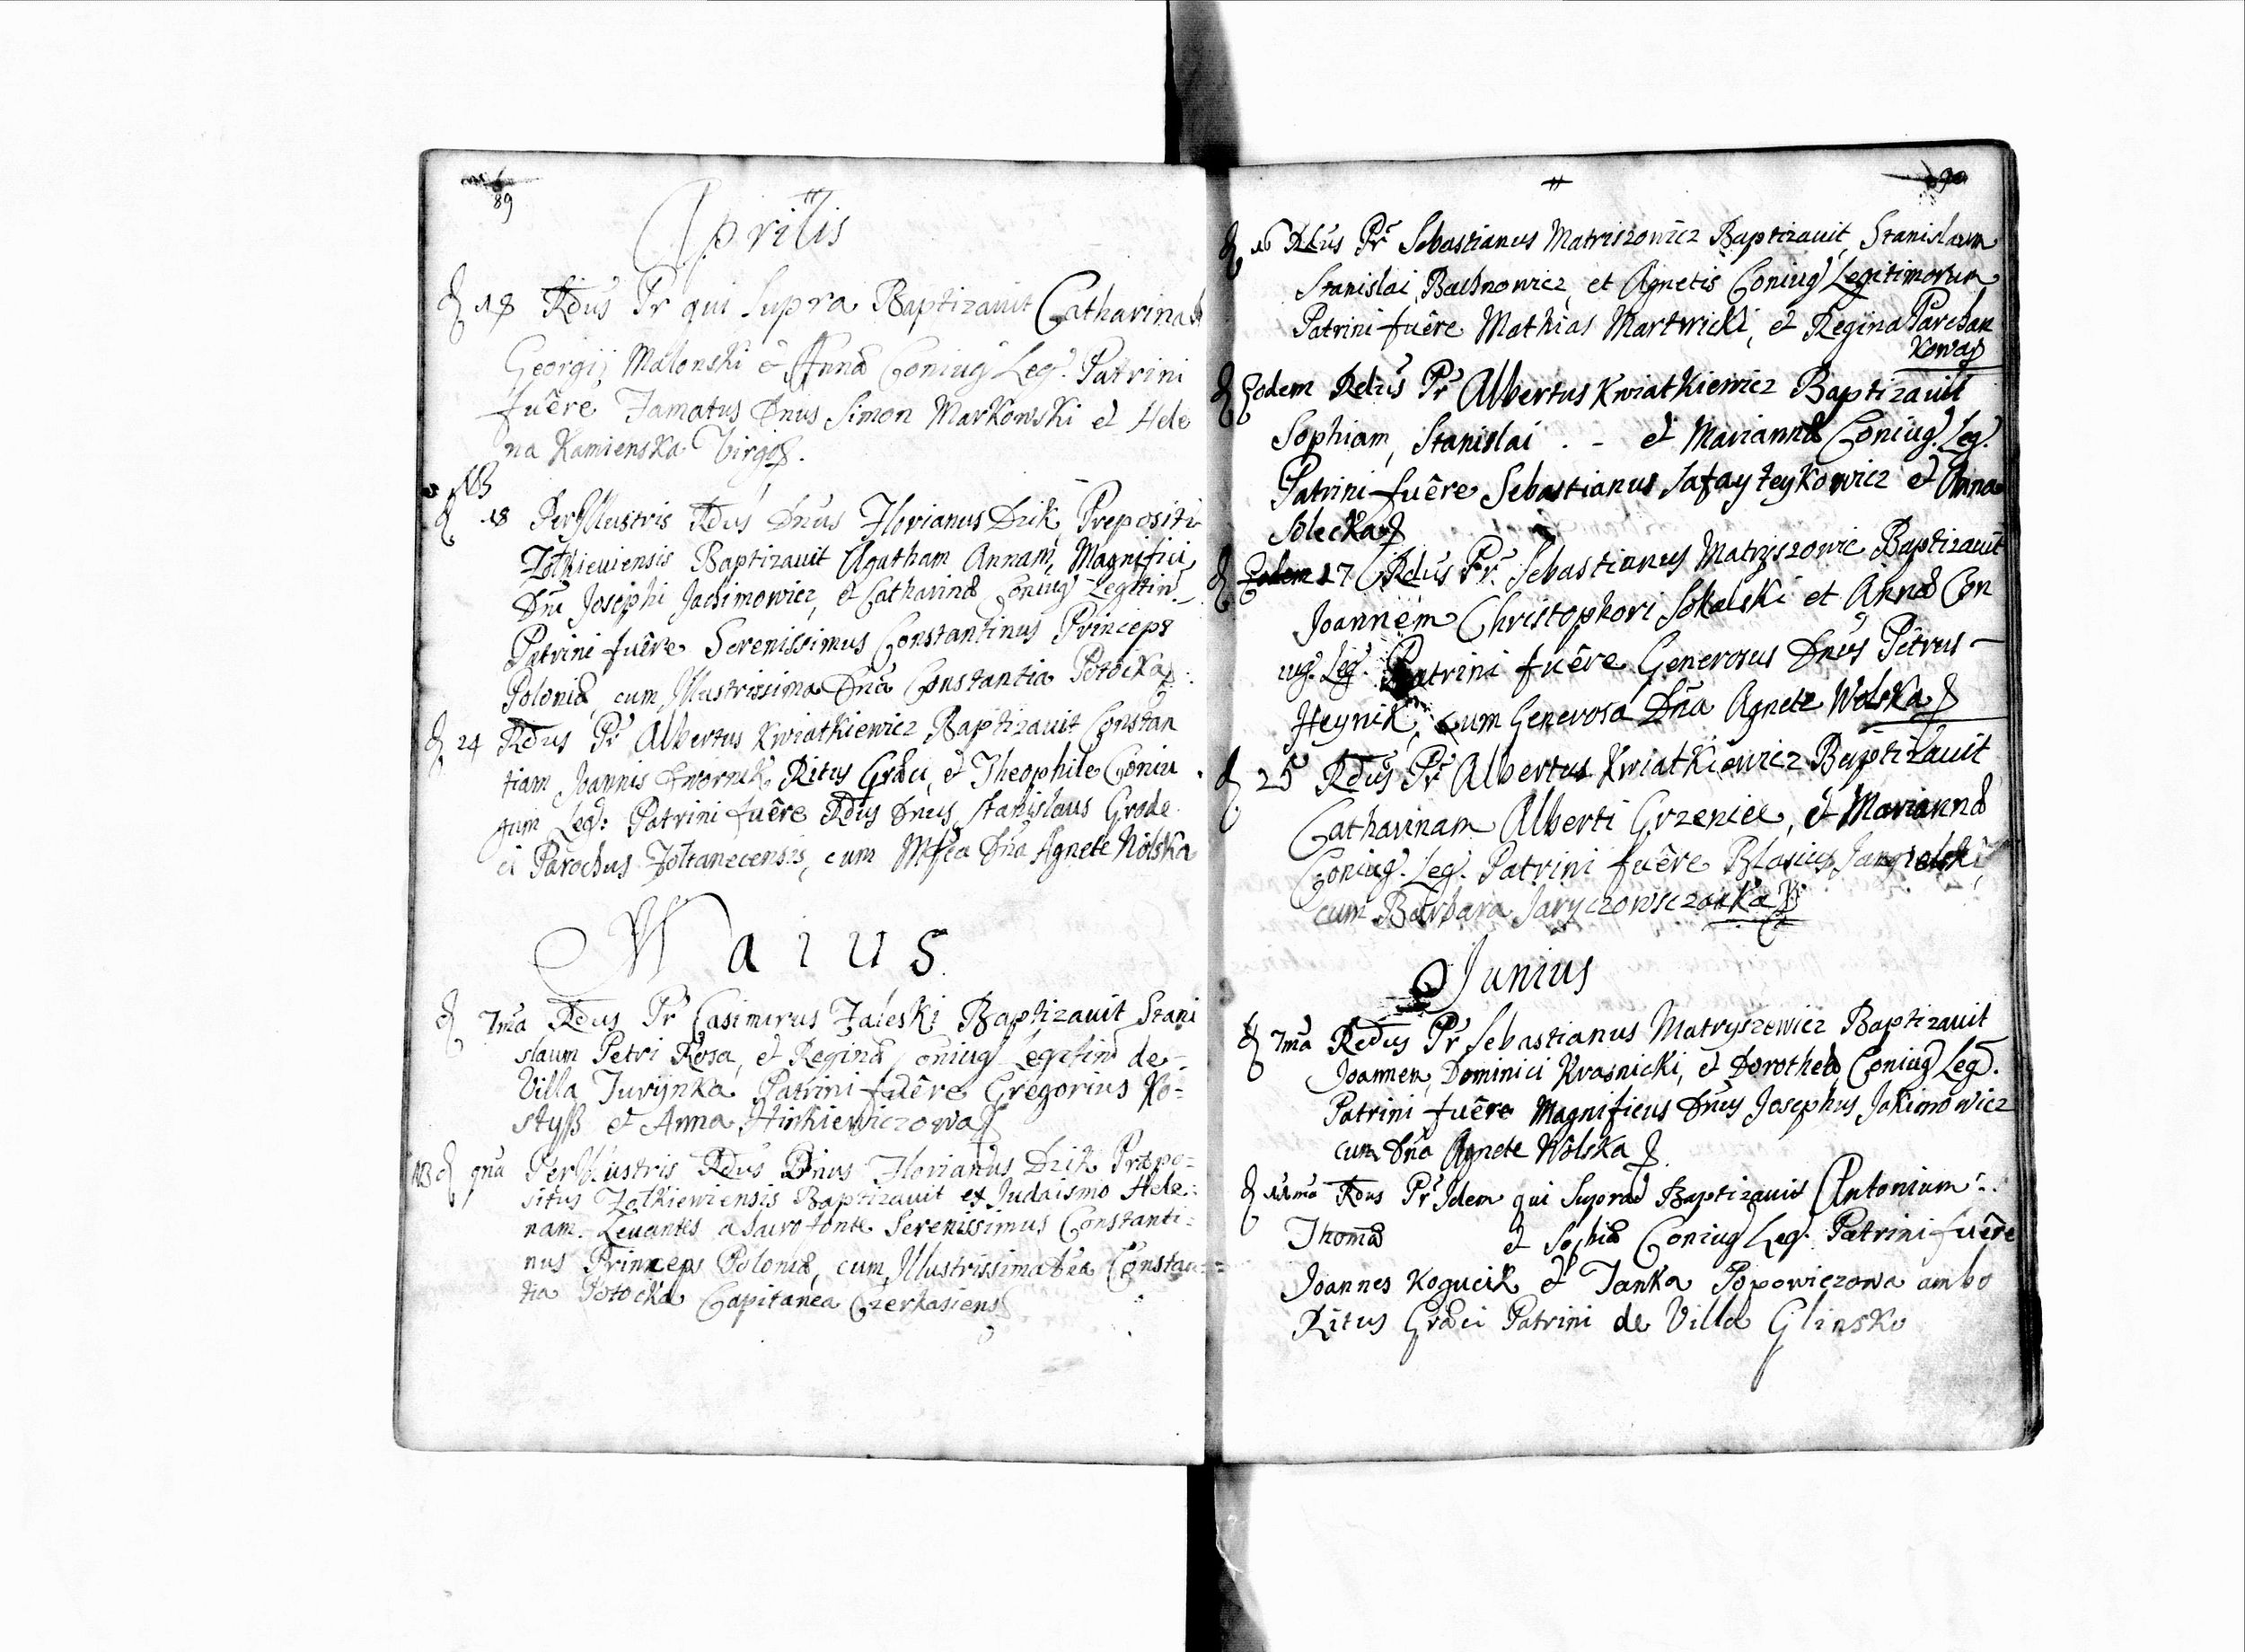 89
Aprilis
18 Rdus Pr qui supra Baptizauit Catharinam
Georgij Malonski et Annæ Coniug Leg. Patrini
fuêre Famatus Dnus Simon Markowski et Hele
na Kamienska Virgo.
NB
18 PerIllustris Rdus Dnus Florianus Dzik Preposits
Zołkieuiensis Baptizauit Agatham Annam, Magnifici
Dni Josephi Jachimowicz, et Catharinæ Coniug Legitim
Patrini fuêre Serenissimus Constantinus Princeps
Poloniæ, cum Illustrissima Dna Constantia Potocka
24 Rdus Pr Albertus Kwiatkiewicz Baptizauit Constan
tiam Joannis Dwornik Ritus Græci, et Theophile Coniu
gum Leg: Patrini fuêre Rdus Dnus Stanislaus Grode
ci Parochus Zołtanecensis, cum Mfca Dna Agnete Wolska
Maius
7ma Rdus Pr Casimirus Zaleski Baptizauit Stani
slaum Petri Rosa, et Reginæ Coniug Legitim de
Villa Turynka Patrini fuêre Gregorius Ko=
styß et Anna Hinkiewiczowa
NB 9na PerIllustris Rdus Dnus Florianus Dzik Præpo=
situs Zołkiewiensis Baptizauit ex Judaismo Hele=
nam. Leuantes a Sacro fonte Serenissimus Constanti=
nus Princeps Poloniæ, cum Illustrissima Dna Constan=
tia Potocka Capitanea Czerkasiens
90
16 Rdus Pr Sebastianus Matriszowicz Baptizauit Stanislaum
Stanislai Bachnowicz, et Agnetis Coniug Legitimorum
Patrini fuêre Mathias Martwicki, et Regina Parchan
kowa
Eodem Rdus Pr Albertus Kwiatkiewicz Baptizauit
Sophiam, Stanislai . - et Mariannæ Coniug. Leg.
Patrini fuêre Sebastianus et Anna
Solecka
Eodem 17 Rdus Pr. Sebastianus Matryszowic Baptizauit
Joannem Christophori Sokalski et Annæ Con
iug. Leg. Patrini fuêre Generosus Dnus Petrus
Heynik, cum Generosa Dna Agnete Wolska
25 Rdus Pr Albertus Kwiatkiewicz Baptizauit
Catharinam Alberti Grzenice, et Mariannæ
Coniug. Leg. Patrini fuêre Blasius
cum Barbara Jaryczowsczanka
Junius
7ma Redus Pr Sebastianus Matryszewicz Baptizauit
Joannem, Dominici Krasnicki, et Dorotheæ Coniug Leg.
Patrini fuêre Magnificus Dnus Josephus Jakimowicz
cum Dna Agnete Wolska
11ma Rdus Pr Idem qui Supra Baptizauit Antonium
Thomæ et Sophiæ Coniug Leg. Patrini fuêre
Joannes Kogucik et Tanka Popowiczowa ambo
Ritus Græci Patrini de Villa Glinsko